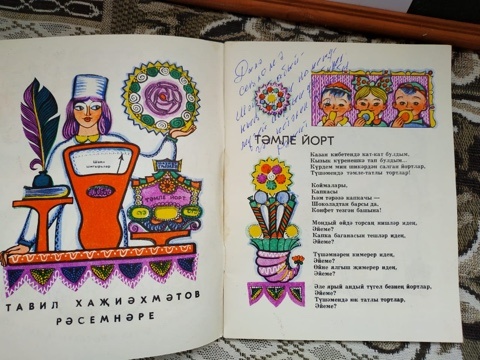 Шагыйрь
ТӘМЛЕ ЙОРТ
ТАВИЛ ХАҖИӘХМӘТОВ
РӘСЕМНӘРЕ
ТӘМЛЕ ЙОРТ
Казан кибетендә кат-кат булдым,
Кызык күренешкә тап булдым...
Күрдем мин шикәрдән салган йортлар,
Түшәмендә тәмле-татлы тортлар!
Коймалары,
Капкасы
Һәм тәрәзә капкачы —
Шоколадтан барсы да,
Конфет тезгән башына!
Мондый өйдә торсаң ишләр идең,
Әйеме?
Капка баганасын тешләр идең,
Әйеме?
Түшәмнәрен кимерер идең,
Әйеме?
Өйне ялгыш җимерер идең,
Әйеме?
Әле ярый андый түгел безнең йортлар,
Әйеме?
Түшәмендә юк татлы тортлар,
Әйеме?